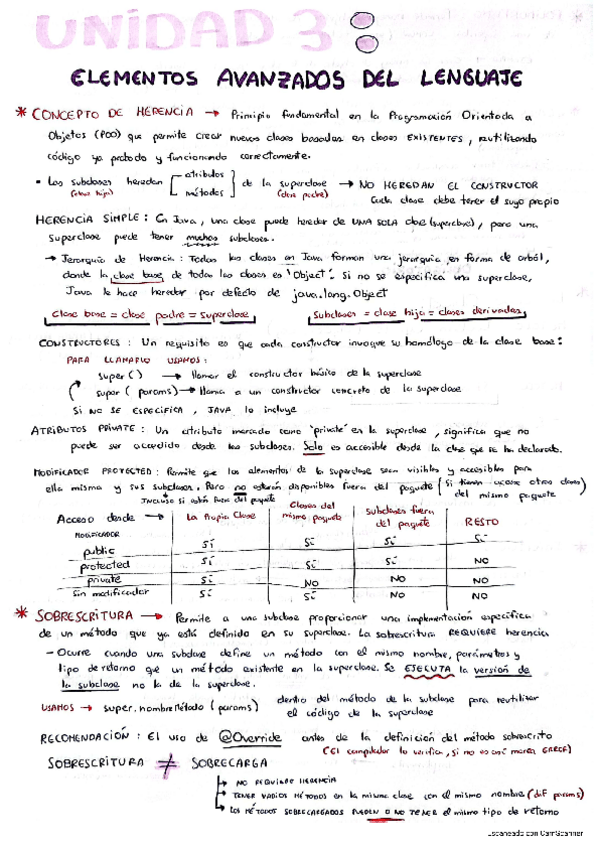 UNIDAD 3:
ELEMENTOS AVANZADOS DEL LENGUAJE
* CONCEPTO DE HERENCIA → Principio fundamental en la Programación Orientada a
Objetos (POO) que permite crear nuevas clases basadas en clases EXISTENTES, reutilizando
código ya probado y funcionando correctamente.
• Las subclases heredan atributos de la superclase → NO HEREDAN EL CONSTRUCTOR
(clase hija) métodos (clase padre) Cada clase debe tener el suyo propio
HERENCIA SIMPLE: En Java, una clase puede heredar de UNA SOLA clase (superclase), pero una
superclase puede tener muchas subclases.
→ Jerarquía de Herencia: Todas las clases en Java forman una jerarquía en forma de árbol,
donde la clase base de todas las clases es 'Object'. Si no se especifica una superclase,
Java le hace heredar por defecto de java.lang.Object
clase base = clase padre = superclase subclases = clase hija = clases derivadas
CONSTRUCTORES: Un requisito es que cada constructor invoque su homólogo de la clase base:
PARA LLAMARLO USAMOS:
super() → llamar el constructor básico de la superclase
super (params) → llama a un constructor concreto de la superclase
SI NO SE ESPECIFICA, JAVA lo incluye
ATRIBUTOS PRIVATE: Un atributo marcado como 'private' en la superclase, significa que no
puede ser accedido desde las subclases. Solo es accesible desde la clase que se ha declarado.
MODIFICADOR PROTECTED: Permite que los elementos de la superclase sean visibles y accesibles para
ella misma y sus subclases. Pero no estarán disponibles fuera del paquete (Si tienen acceso otras clases
INCLUSO si están fuera del paquete del mismo paquete
Acceso desde → La Propia Clase Clases del mismo paquete Subclases fuera del paquete RESTO
MODIFICADOR
public SÍ SÍ SÍ SÍ
protected SÍ SÍ SÍ NO
private SÍ NO NO NO
Sin modificador SÍ SÍ NO NO
* SOBRESCRITURA → Permite a una subclase proporcionar una implementación específica
de un método que ya está definido en su superclase. La sobrescritura REQUIERE herencia
- Ocurre cuando una subclase define un método con el mismo nombre, parámetros y
tipo de retorno que un método existente en la superclase. Se EJECUTA la versión de
la subclase no la de la superclase.
USAMOS → super.nombreMétodo (params) dentro del método de la subclase para reutilizar
el código de la superclase
RECOMENDACIÓN: El uso de @Override antes de la definición del método sobrescrito
(El compilador lo verifica, si no es así marca ERROR)
SOBRESCRITURA ≠ SOBRECARGA
→ NO REQUIERE HERENCIA
→ TENER VARIOS MÉTODOS EN la misma clase con el mismo nombre (dif params)
→ LOS MÉTODOS SOBRECARGADOS PUEDEN O NO TENER el mismo tipo de retorno
Escaneado con CamScanner